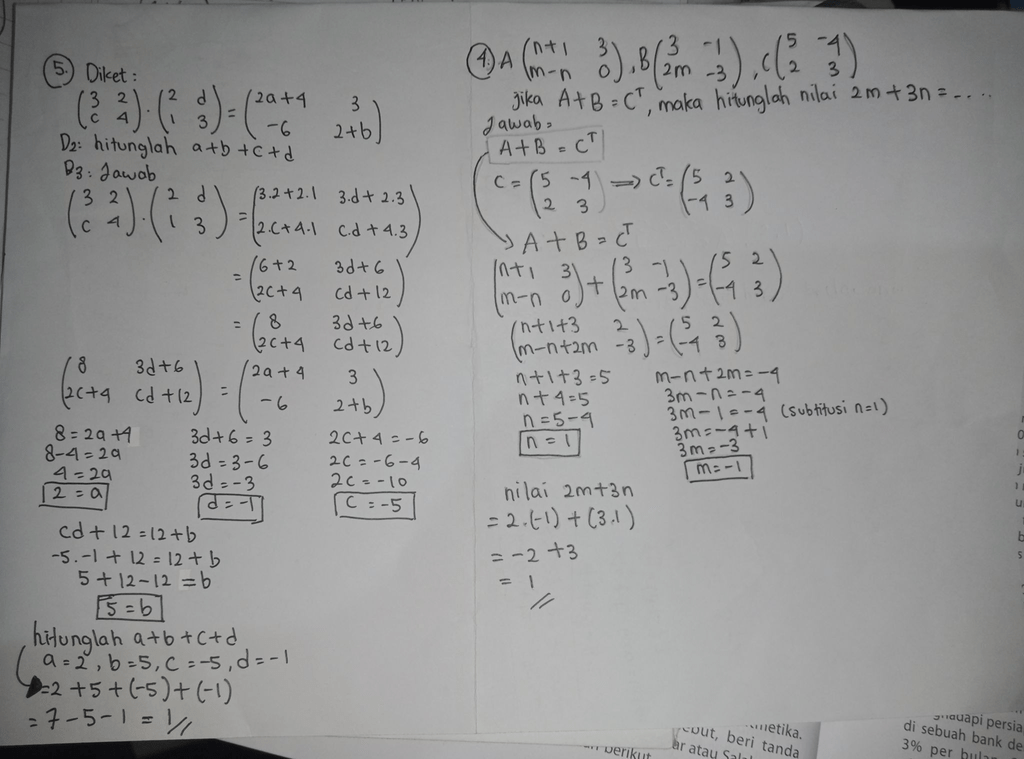 5. Diket :
(3 2
c 4) . (2 d
1 3) = (2a+4 3
-6 2+b)
D2: hitunglah a+b+c+d
D3: Jawab
(3 2
c 4) . (2 d
1 3) = (3.2+2.1 3.d+2.3
2.c+4.1 c.d+4.3)
= (6+2 3d+6
2c+4 cd+12)
= (8 3d+6
2c+4 cd+12)
(8 3d+6
2c+4 cd+12) = (2a+4 3
-6 2+b)
8=2a+4
8-4=2a
4=2a
2=a
3d+6=3
3d=3-6
3d=-3
d=-1
2c+4=-6
2c=-6-4
2c=-10
c=-5
cd+12=12+b
-5.-1+12=12+b
5+12-12=b
5=b
hitunglah a+b+c+d
a=2, b=5, c=-5, d=-1
=2+5+(-5)+(-1)
=7-5-1=1//
4. A (n+1 3
m-n 0), B (3 -1
2m -3), C (5 -4
2 3)
Jika A+B=C^T, maka hitunglah nilai 2m+3n=....
Jawab=
A+B=C^T
C = (5 -4
2 3) ⟹ C^T= (5 2
-4 3)
A+B=C^T
(n+1 3
m-n 0) + (3 -1
2m -3) = (5 2
-4 3)
(n+1+3 2
m-n+2m -3) = (5 2
-4 3)
n+1+3=5
n+4=5
n=5-4
n=1
m-n+2m=-4
3m-n=-4
3m-1=-4 (subtitusi n=1)
3m=-4+1
3m=-3
m=-1
nilai 2m+3n
=2.(-1)+(3.1)
=-2+3
=1
//
berikut
ebut, beri tanda
ar atau
metika.
persia
di sebuah bank de
3% per